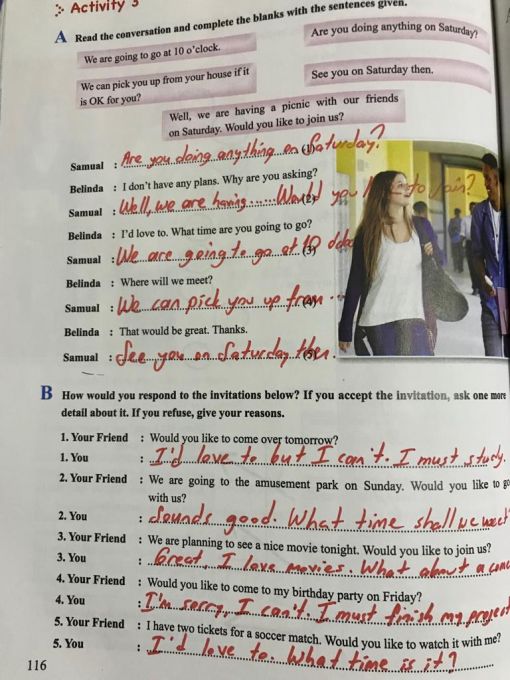 Activity 3
A Read the conversation and complete the blanks with the sentences given.
We are going to go at 10 o'clock.
Are you doing anything on Saturday?
We can pick you up from your house if it
is OK for you?
See you on Saturday then.
Well, we are having a picnic with our friends
on Saturday. Would you like to join us?
Samual : Are you doing anything on Saturday? (1)
Belinda : I don't have any plans. Why are you asking?
Samual : Well, we are having...... Would you like to join? (2)
Belinda : I'd love to. What time are you going to go?
Samual : We are going to go at 10 (3)
Belinda : Where will we meet?
Samual : We can pick you up from ... (4)
Belinda : That would be great. Thanks.
Samual : See you on Saturday then. (5)
B How would you respond to the invitations below? If you accept the invitation, ask one more
detail about it. If you refuse, give your reasons.
1. Your Friend : Would you like to come over tomorrow?
1. You : I'd love to but I can't. I must study.
2. Your Friend : We are going to the amusement park on Sunday. Would you like to go
with us?
2. You : Sounds good. What time shall we meet
3. Your Friend : We are planning to see a nice movie tonight. Would you like to join us?
3. You : Great, I love movies. What about a
4. Your Friend : Would you like to come to my birthday party on Friday?
4. You : I'm sorry, I can't. I must finish my project
5. Your Friend : I have two tickets for a soccer match. Would you like to watch it with me?
5. You : I'd love to. What time is it?
116